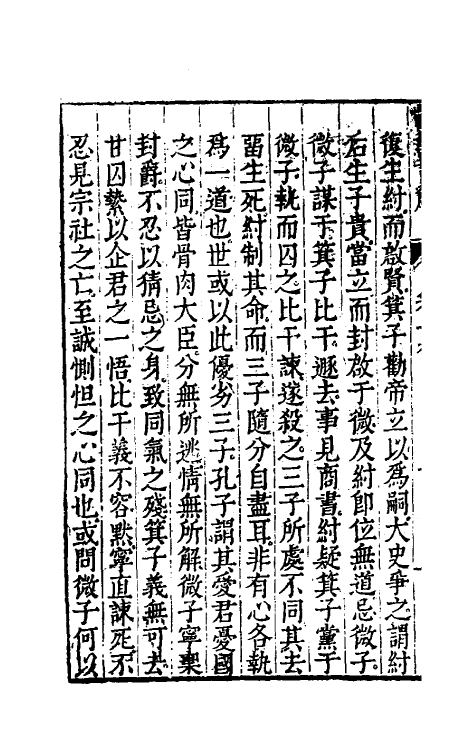 復生紂而啟賢箕子勸帝立以爲嗣大史爭之謂紂
后生子貴當立而封啟于微及紂即位無道忌微子
微子謀于箕子比干遯去事見商書紂疑箕子黨于
微子執而囚之比干諫遂殺之三子所處不同其去
畱生死紂制其命而三子隨分自盡耳非有心各執
爲一道也世或以此優劣三子孔子謂其愛君憂國
之心同皆骨肉大臣分無所逃情無所解微子寧棄
封爵不忍以猜忌之身致同氣之殘箕子義無可去
甘囚縶以企君之一悟比干義不容默寧直諫死不
忍見宗社之亡至誠惻怛之心同也或問微子何以